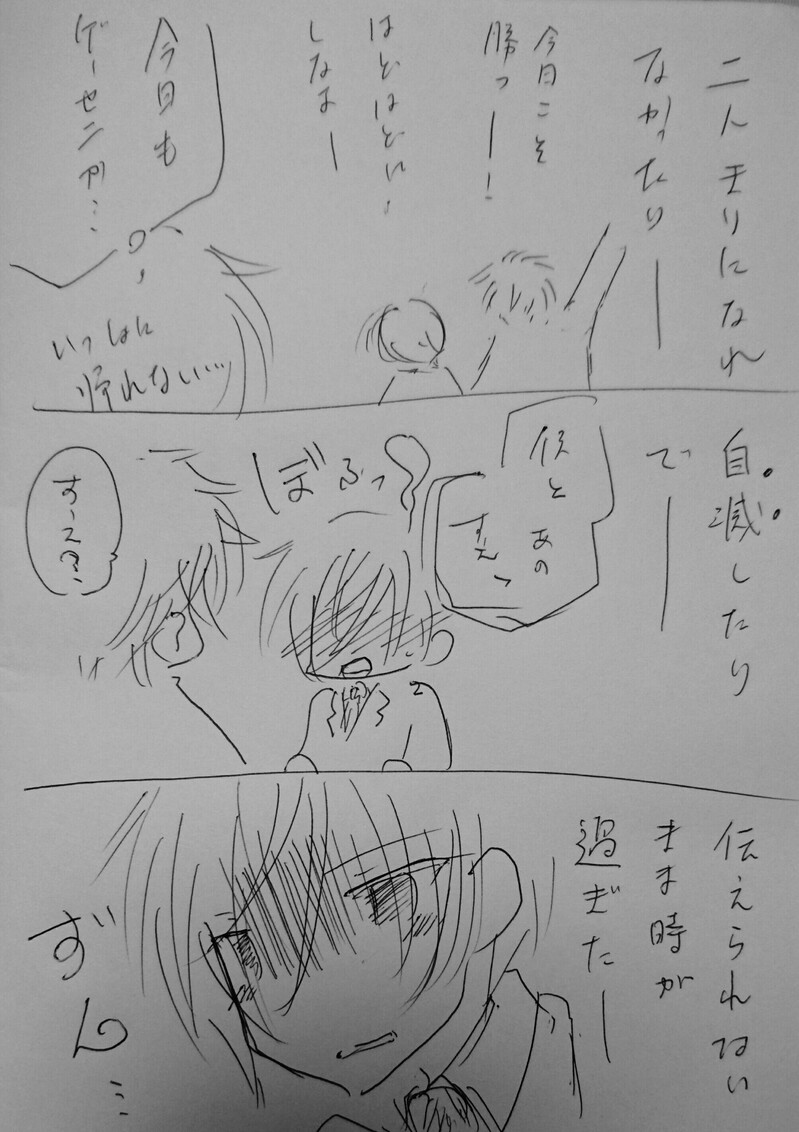 二人キリになれ
なかったりー
今日こそ
勝つー！
ほどほどに
しなよー
今日も
ゲーセンか…
いっしょに
帰れない…
自滅したり
でー
俺と
あの
すえっ
ぼふっ
すーえ？
伝えられない
まま時が
過ぎたー
ずん…